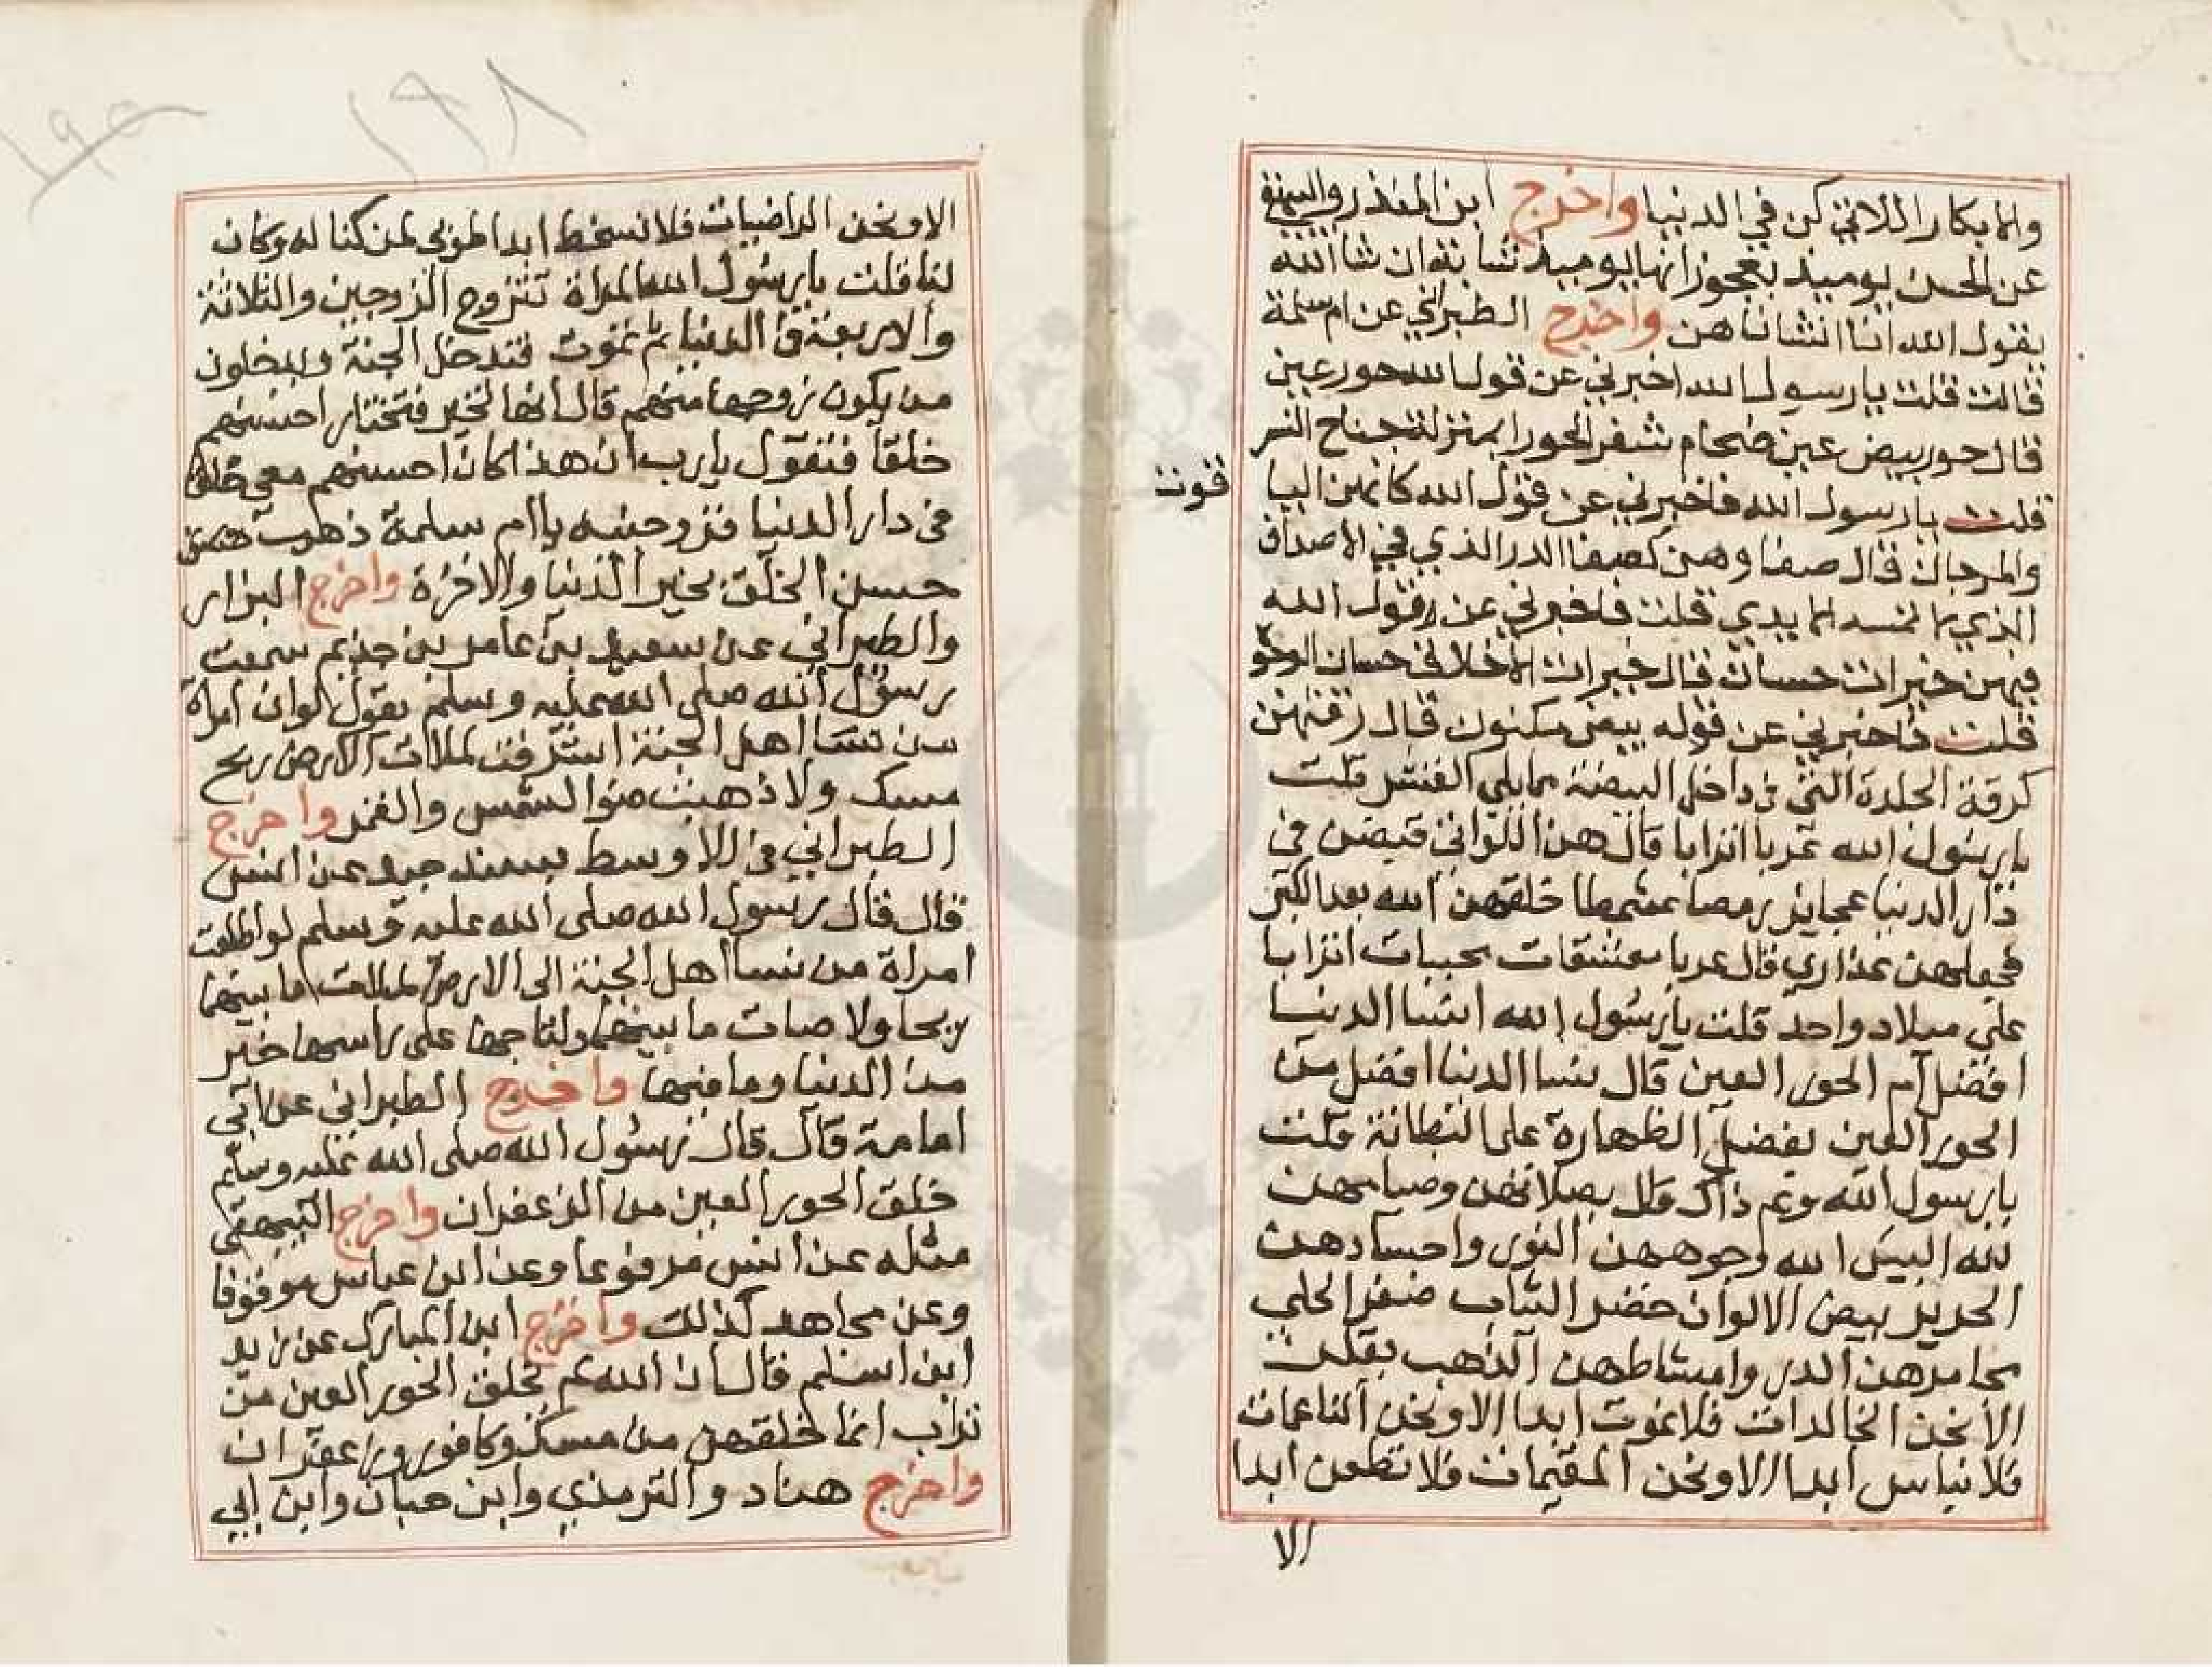 والابكار اللاتي كن في الدنيا واخرج ابن المنذر والبيهقي
عن الحسن يوميذ بعجوز انها يوميذ شابة ان شا الله
يقول الله انا انشاناهن واخرج الطبراني عن ام سلمة
قالت قلت يا رسول الله اخبرني عن قول الله حور عين
قال حور بيض عين ضخام شفر الحورا بمنزلة جناح النسر
قلت يا رسول الله فاخبرني عن قول الله كانهن اليا
قوت
والمرجان قال صفا وهن كصفا الدر الذي في الاصداف
الذي لا تمسه الايدي قلت فاخبرني عن قول الله
فيهن خيرات حسان قال خيرات الاخلاق حسان الوجوه
قلت فاخبرني عن قوله بيض مكنون قال رقتهن
كرقة الجلدة التي في داخل البيضة مما يلي القشر قلت
يا رسول الله عربا اترابا قال هن اللواتي قبضن في
دار الدنيا عجايز رمصا شمطا خلقهن الله بعد الكبر
فجعلهن عذاري قال عربا معشقات محببات اترابا
على ميلاد واحد قلت يا رسول الله انسا الدنيا
افضل ام الحور العين قال نسا الدنيا افضل من
الحور العين كفضل الظهارة على البطانة قلت
يا رسول الله وبم ذاك قال بصلاتهن وصيامهن
لله البس الله وجوههن النور واجسادهن
الحرير بيض الالوان خضر الثياب صفر الحلي
مجامرهن الدر وامشاطهن الذهب يقلن
الا نحن الخالدات فلا نموت ابدا الا ونحن الناعمات
فلا نباس ابدا الا ونحن المقيمات فلا نظعن ابدا
الا
١٩٨
الا ونحن الراضيات فلا نسخط ابدا طوبى لمن كنا له وكان
لنا قلت يا رسول الله المراة تتزوج الزوجين والثلاثة
والاربعة في الدنيا ثم تموت فتدخل الجنة ويدخلون
من يكون زوجها منهم قال انها تخير فتختار احسنهم
خلقا فتقول يا رب ان هذا كان احسنهم معي خلقا
في دار الدنيا فزوجنيه يا ام سلمة ذهب
حسن الخلق بخير الدنيا والاخرة واخرج البزار
والطبراني عن سعيد بن عامر بن جذيم سمعت
رسول الله صلى الله عليه وسلم يقول لو ان امراة
من نسا اهل الجنة اشرفت لملات الارض ريح
مسك ولاذهبت ضوا الشمس والقمر واخرج
الطبراني في الاوسط بسند جيد عن انس
قال قال رسول الله صلى الله عليه وسلم لو اطلعت
امراة من نسا اهل الجنة الى الارض لملات ما بينهما
ريحا ولاضات ما بينهما ولتاجها على راسها خير
من الدنيا وما فيها واخرج الطبراني عن ابي
امامة قال قال رسول الله صلى الله عليه وسلم
خلق الحور العين من الزعفران واخرج البيهقي
مثله عن انس مرفوعا وعن ابن عباس موقوفا
وعن مجاهد كذلك واخرج ابن المبارك عن زيد
ابن اسلم قال ان الله لم يخلق الحور العين من
تراب انما خلقهن من مسك وكافور وزعفران
واخرج هناد والترمذي وابن حبان وابن ابي